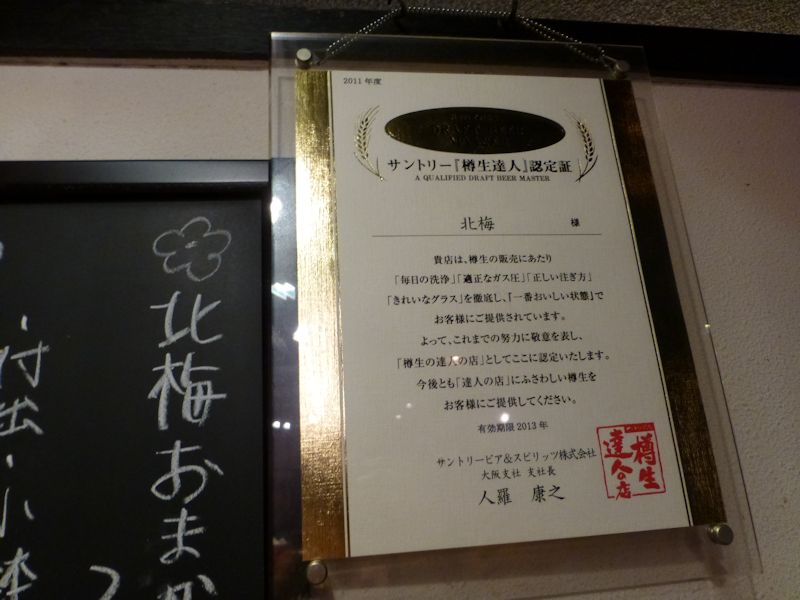 2011年度
サントリー『樽生達人』認定証
A QUALIFIED DRAFT BEER MASTER
北梅 様
貴店は、樽生の販売にあたり
「毎日の洗浄」「適正なガス圧」「正しい注ぎ方」
「きれいなグラス」を徹底し、「一番おいしい状態」で
お客様にご提供されています。
よって、これまでの努力に敬意を表し、
「樽生の達人の店」としてここに認定いたします。
今後とも「達人の店」にふさわしい樽生を
お客様にご提供してください。
有効期限2013年
サントリービア&スピリッツ株式会社
大阪支社 支社長
人羅 康之
樽生
達人の店
北梅おまか
・付出・小鉢